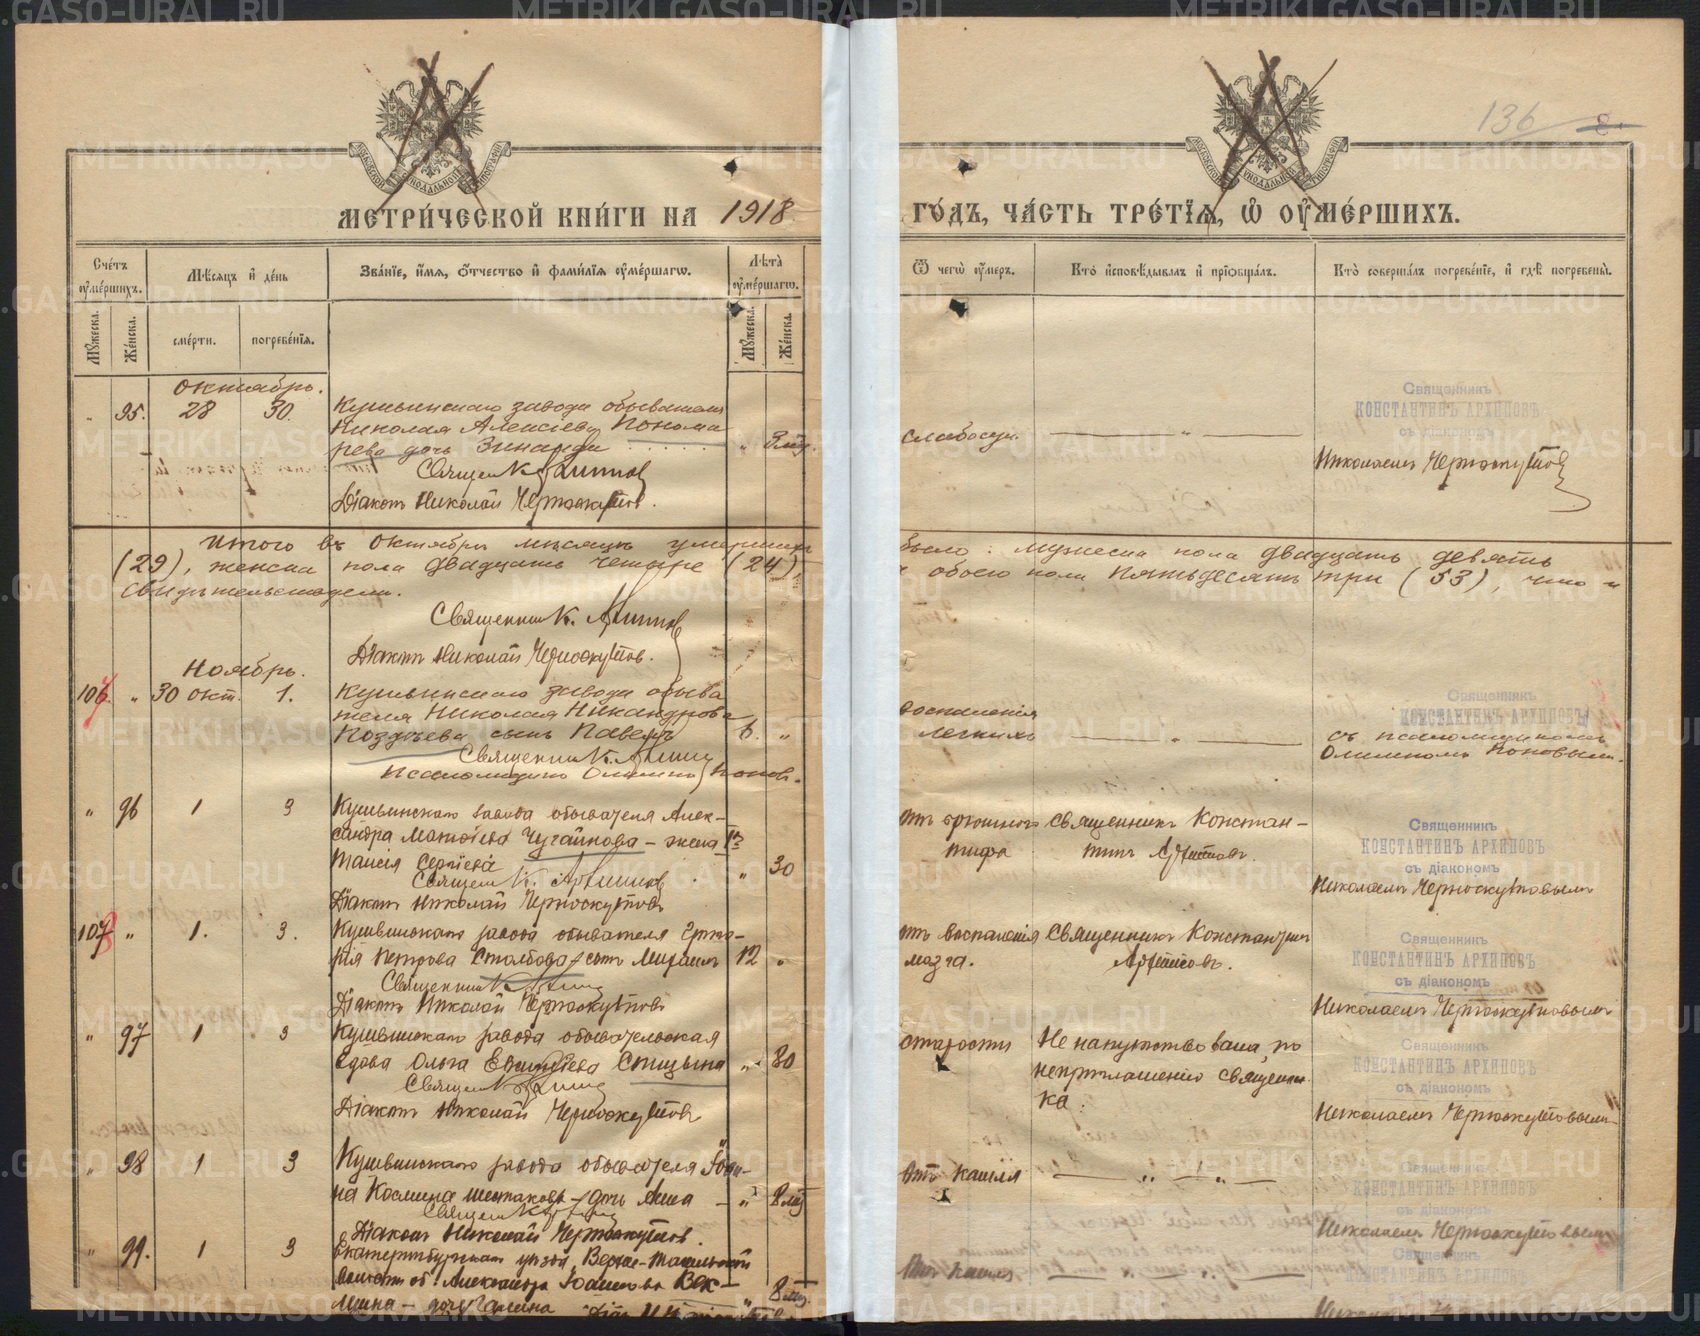 136
МЕТРИЧЕСКОЙ КНИГИ НА 1918
ГОДЪ, ЧАСТЬ ТРЕТІЯ, Ѿ ОУМЕРШИХЪ.
Счетъ оумершихъ.
Мѣсяцъ и день
Званіе, имя, отчество и фамилія оумершагѡ.
Лѣта оумершагѡ.
Ѿ чегѡ оумеръ.
Кто исповѣдывалъ и пріобщалъ.
Кто совершалъ погребеніе, и гдѣ погребены.
Мужеска.
Женска.
смерти.
погребенія.
Мужеска.
Женска.
Октябрь.
95. 28 30. Кушвинскаго завода обывателя
Николая Алексіева Понома
рева дочь Зинаида
Священ К. Архипов
Діаконъ Николай Черноскутов.
слабости.
Священникъ
КОНСТАНТИНЪ АРХИПОВЪ
съ діаконом
Николаемъ Черноскутов
Итого въ Октябрѣ мѣсяцѣ умершихъ было: мужеска пола двадцать девять
(29), женска пола двадцать четыре (24), обоего пола пятьдесятъ три (53), что и
свидѣтельствуем.
Священник К. Архипов
Діаконъ Николай Черноскутов.
Ноябрь.
106. " 30 окт. 1. Кушвинскаго завода обыва
теля Николая Никандрова
Коздоева сынъ Павелъ 6. "
Священник К. Архип
Псаломщикъ Попов.
воспаленія
легкихъ
Священник
КОНСТАНТИНЪ АРХИПОВЪ
съ псаломщикомъ
Поповым.
" 96 1 3 Кушвинскаго завода обывателя Алек-
сандра Матѳіева Чугайнова - жена
Таисія Сергіева " 30
Священ К. Архипов
Діаконъ Николай Черноскутовъ
отъ брюшного
тифа
Священникъ Констан-
тинъ Архиповъ.
Священникъ
КОНСТАНТИНЪ АРХИПОВЪ
съ діакономъ
Николаемъ Черноскутовымъ
107 " 1. 3. Кушвинскаго завода обывателя Григо-
рія Петрова Столбова, сынъ Михаилъ 12 "
Священник К. Архип
Діаконъ Николай Черноскутовъ
отъ воспаленія
мозга.
Священникъ Константинъ
Архиповъ.
Священникъ
КОНСТАНТИНЪ АРХИПОВЪ
съ діакономъ
Николаемъ Черноскутовымъ
" 97 1 3 Кушвинскаго завода обывательская
вдова Ольга Спицына " 80
Священ К. Архип
Діаконъ Николай Черноскутовъ
старости
Не напутствована, по
неприглашенію священни
ка.
Священникъ
КОНСТАНТИНЪ АРХИПОВЪ
съ діакономъ
Николаемъ Черноскутовым
" 98 1 3 Кушвинскаго завода обывателя Іоан-
на Космина Шестакова - дочь Анна -
Священ К. Архип
Діаконъ Николай Черноскутов.
Отъ кашля
Священникъ
КОНСТАНТИНЪ АРХИПОВЪ
съ діакономъ
Николаемъ Черноскутовым
" 99. 1 3 Екатеринбургскаго уѣзда, Верхне-Тагильской
волости об. Александра Іоаннова Век-
шина - дочь Галина
Отъ кашля
Священникъ
КОНСТАНТИНЪ АРХИПОВЪ
METRIKI.GASO-URAL.RU